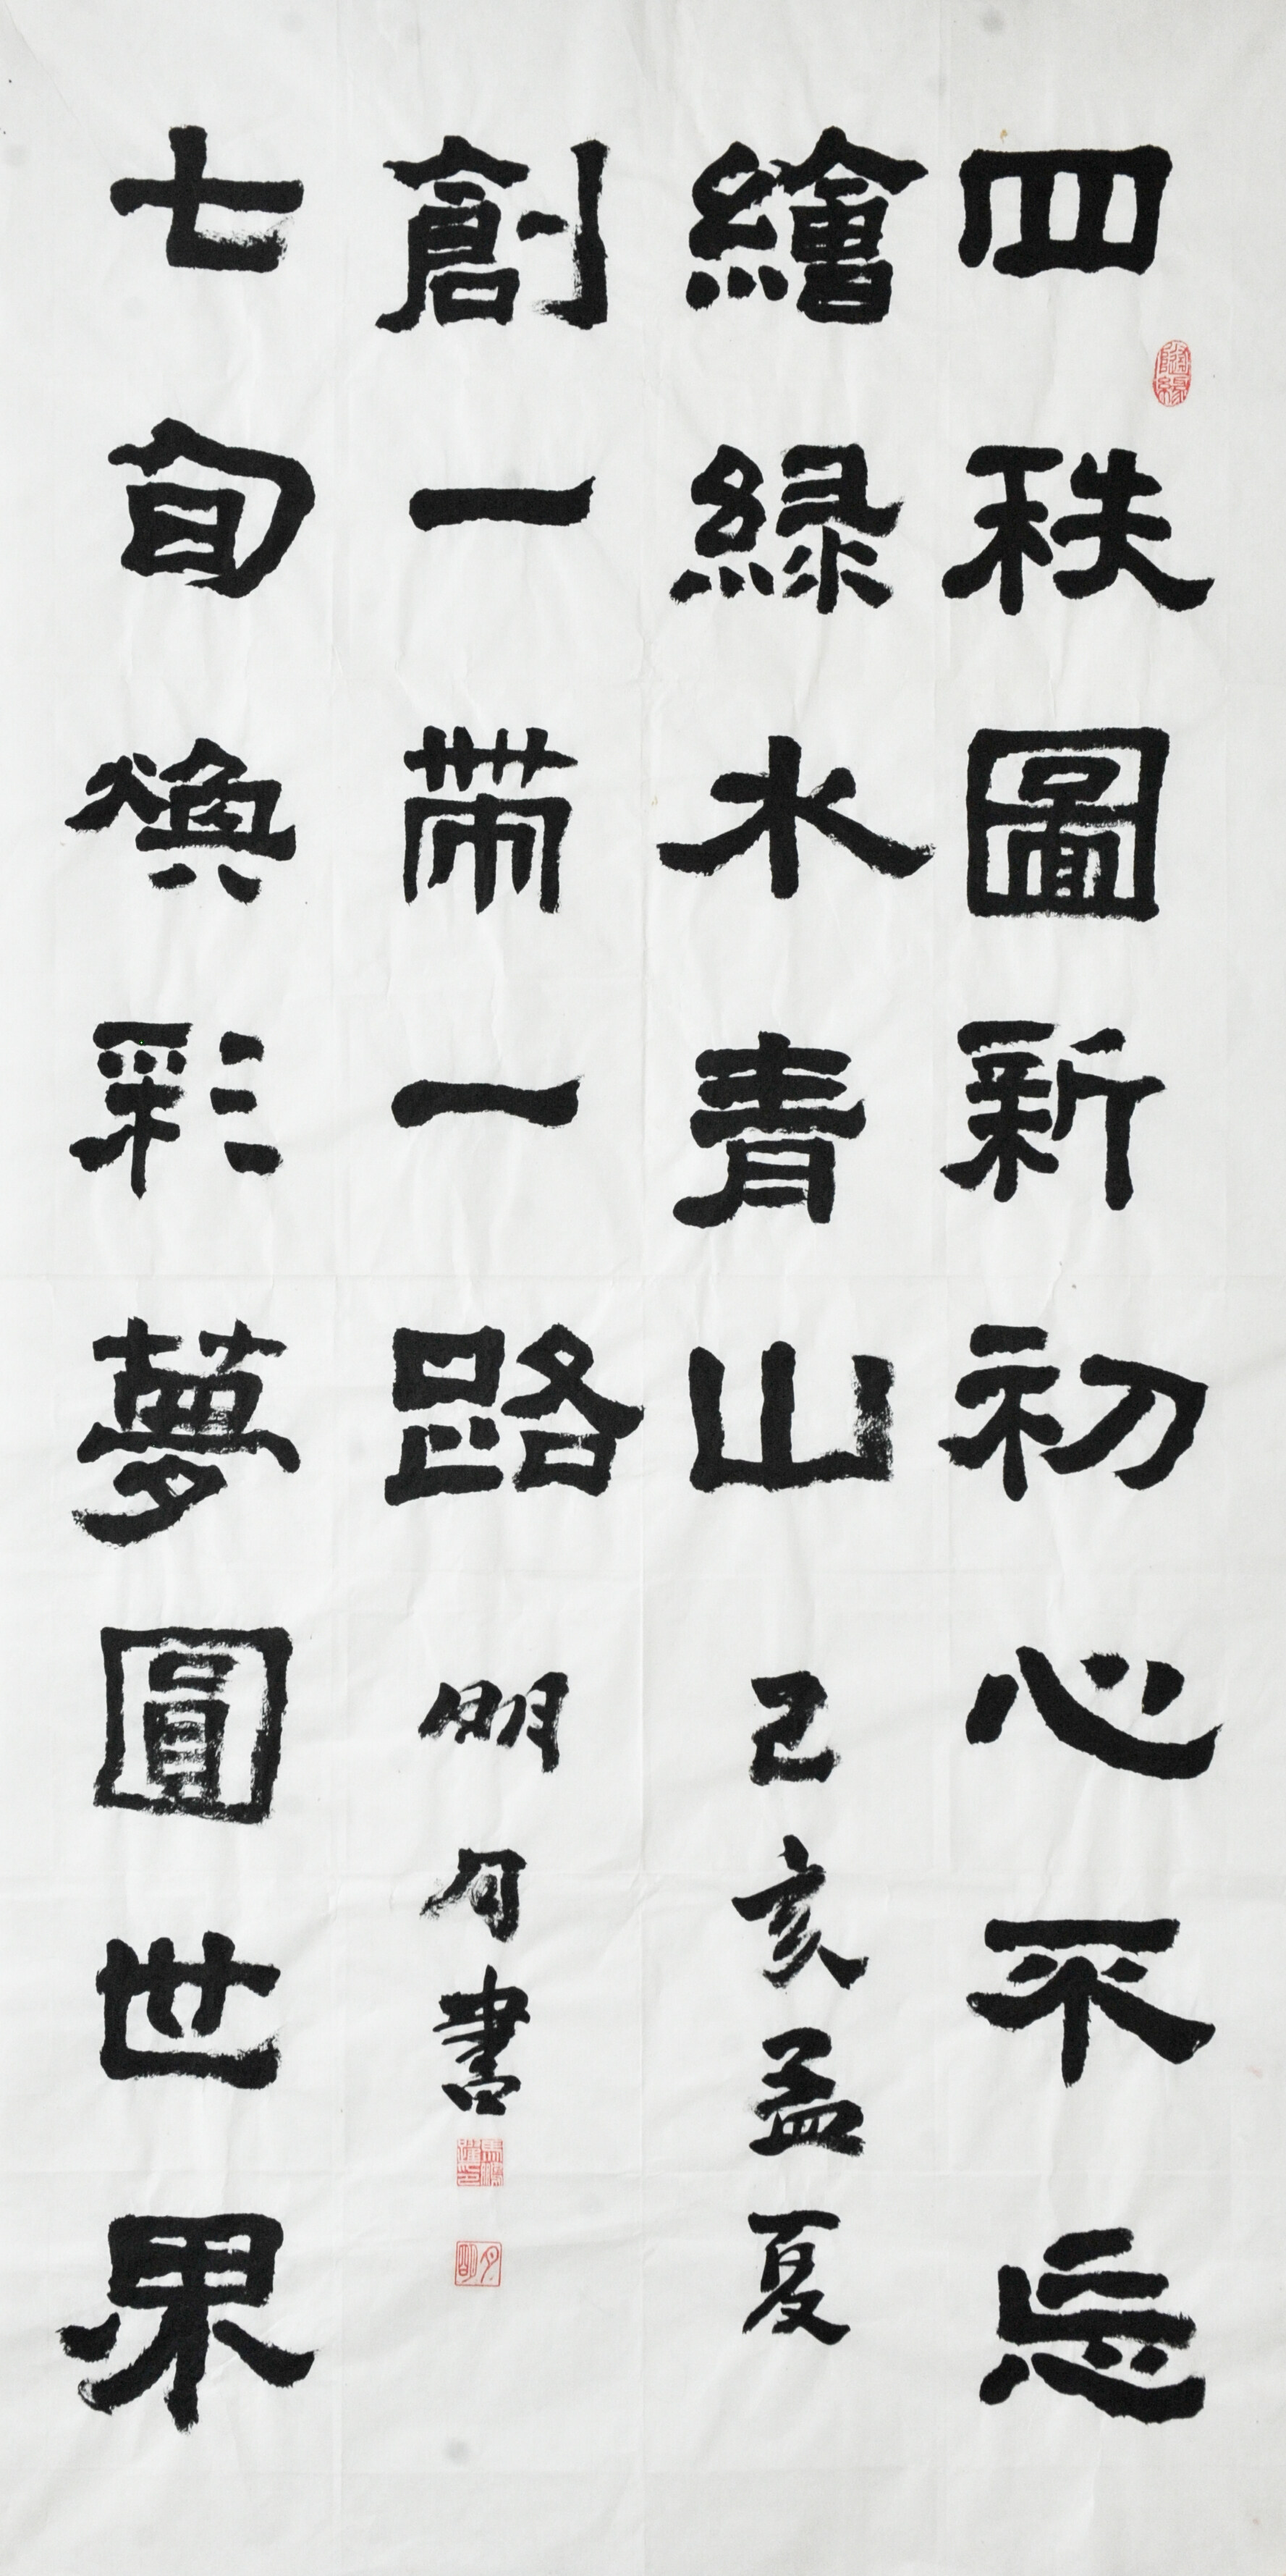 四秩圖新初心不忘
繪綠水青山
七旬煥彩夢圓世界
創一帶一路
己亥孟夏
明月書